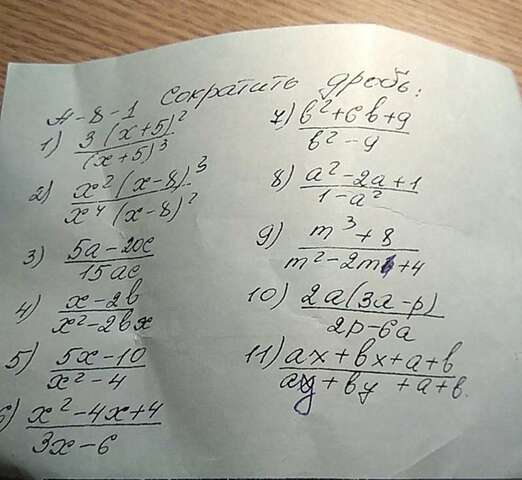 А-8-1 Сократить дробь:
1) 3(x+5)² / (x+5)³
2) x²(x-8)³ / x⁴(x-8)²
3) 5a-20c / 15ac
4) x-2b / x²-2bx
5) 5x-10 / x²-4
6) x²-4x+4 / 3x-6
7) b²+6b+9 / b²-9
8) a²-2a+1 / 1-a²
9) m³+8 / m²-2m+4
10) 2a(3a-p) / 2p-6a
11) ax+bx+a+b / ay+by+a+b.